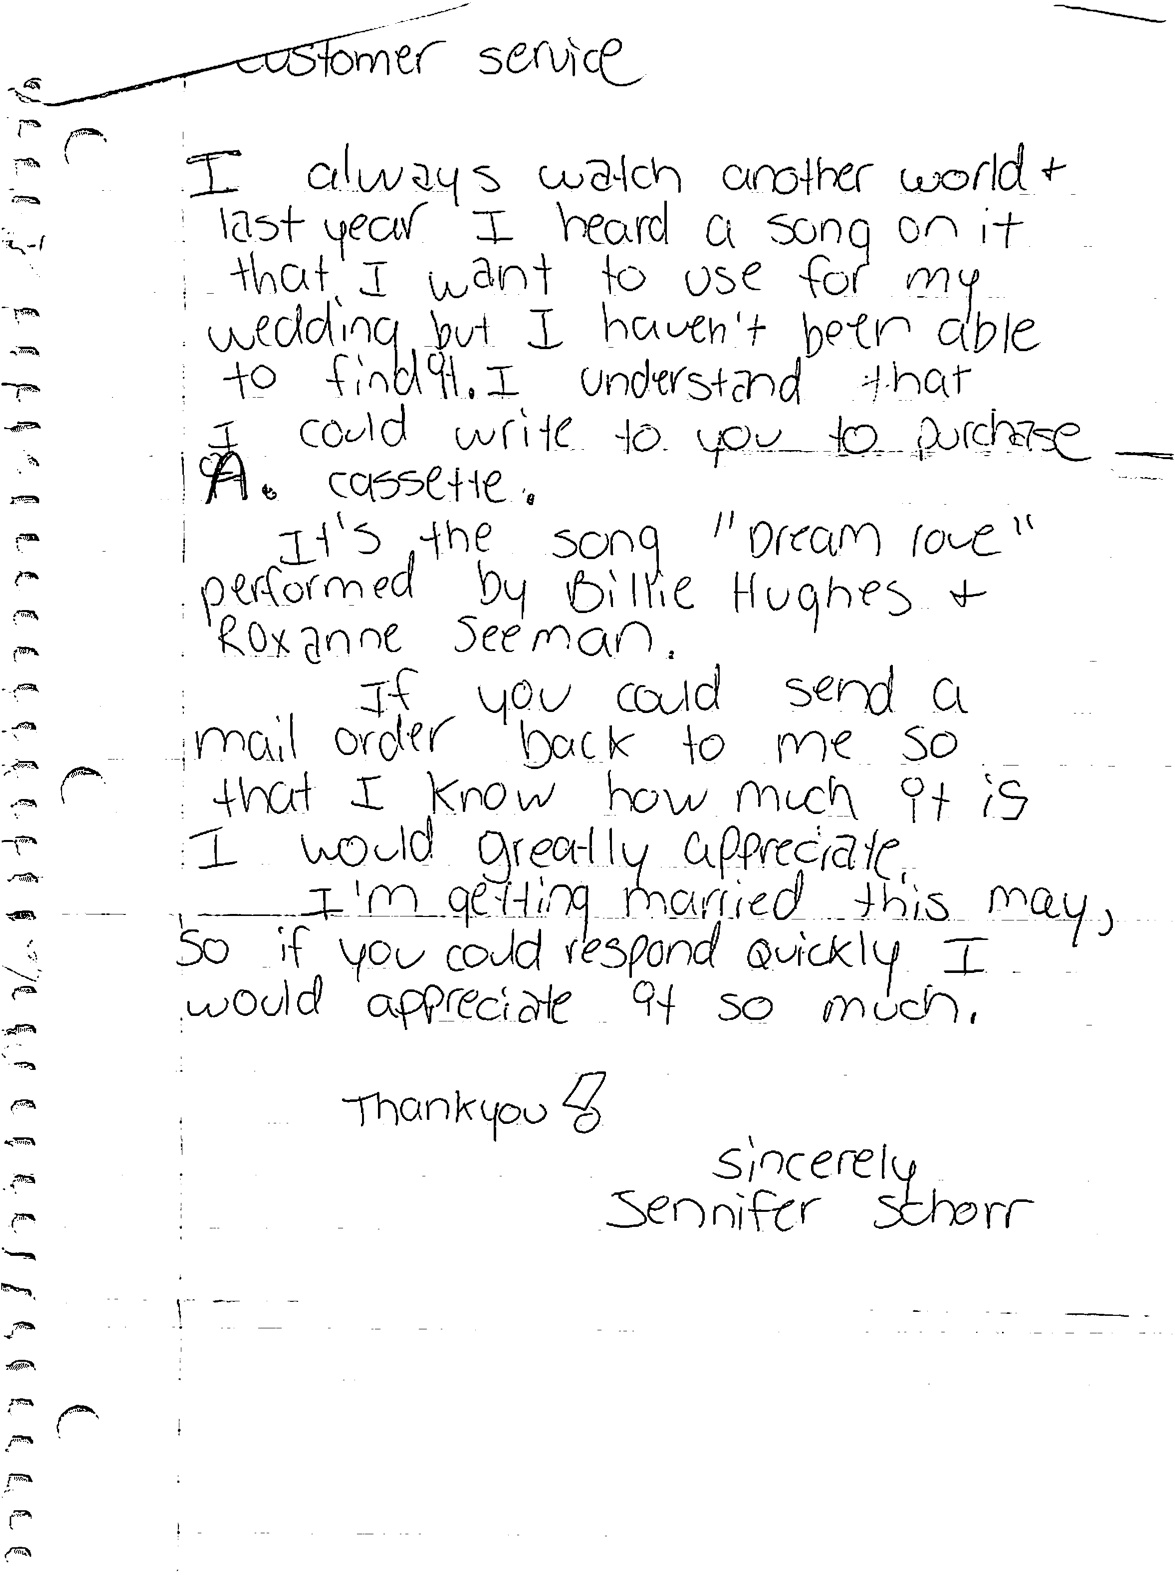 customer service
I always watch another world +
last year I heard a song on it
that I want to use for my
wedding but I haven't been able
to find it. I understand that
I could write to you to purchase
A. cassette.
It's the song "Dream love"
performed by Billie Hughes +
Roxanne Seeman.
If you could send a
mail order back to me so
that I know how much it is
I would greatly appreciate.
I'm getting married this may,
so if you could respond quickly I
would appreciate it so much.
Thankyou!
sincerely
Jennifer Schorr